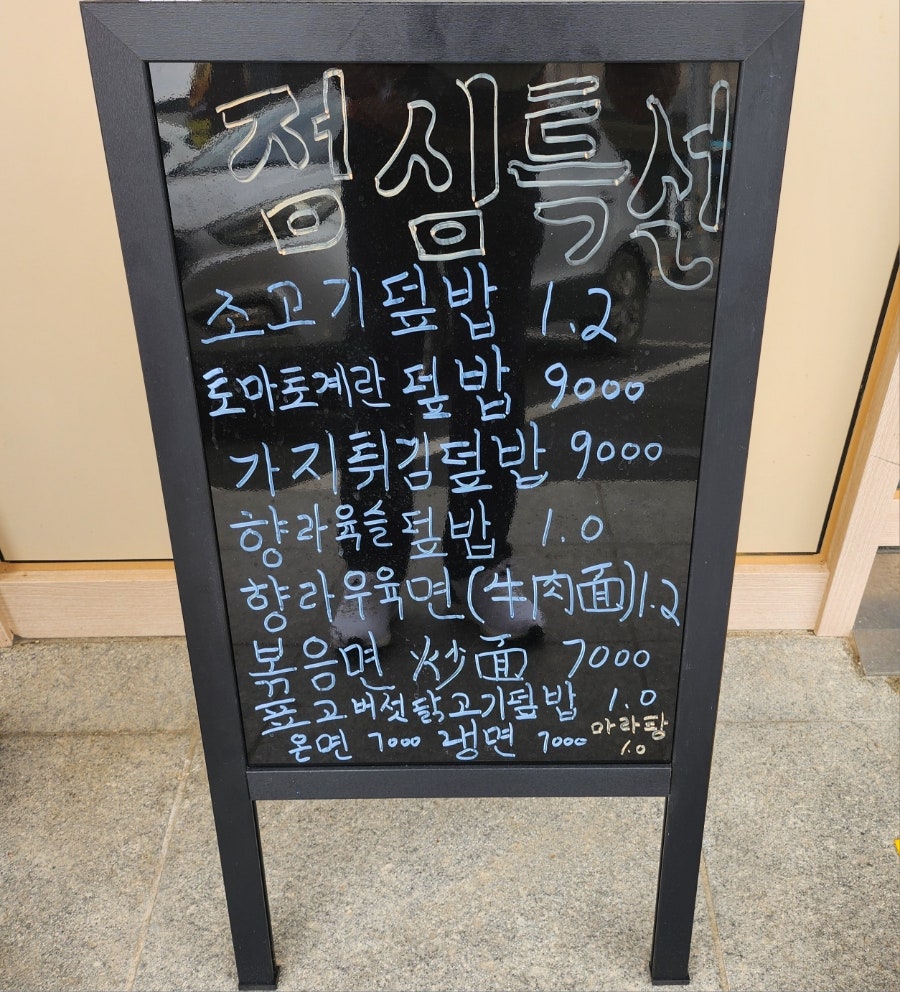 점심특선
소고기덮밥 1.2
토마토계란 덮밥 9000
가지튀김덮밥 9000
향라육슬덮밥 1.0
향라우육면(牛肉面)1.2
볶음면 炒面 7000
표고버섯닭고기덮밥 1.0
온면 7000 냉면 7000
마라탕
1.0